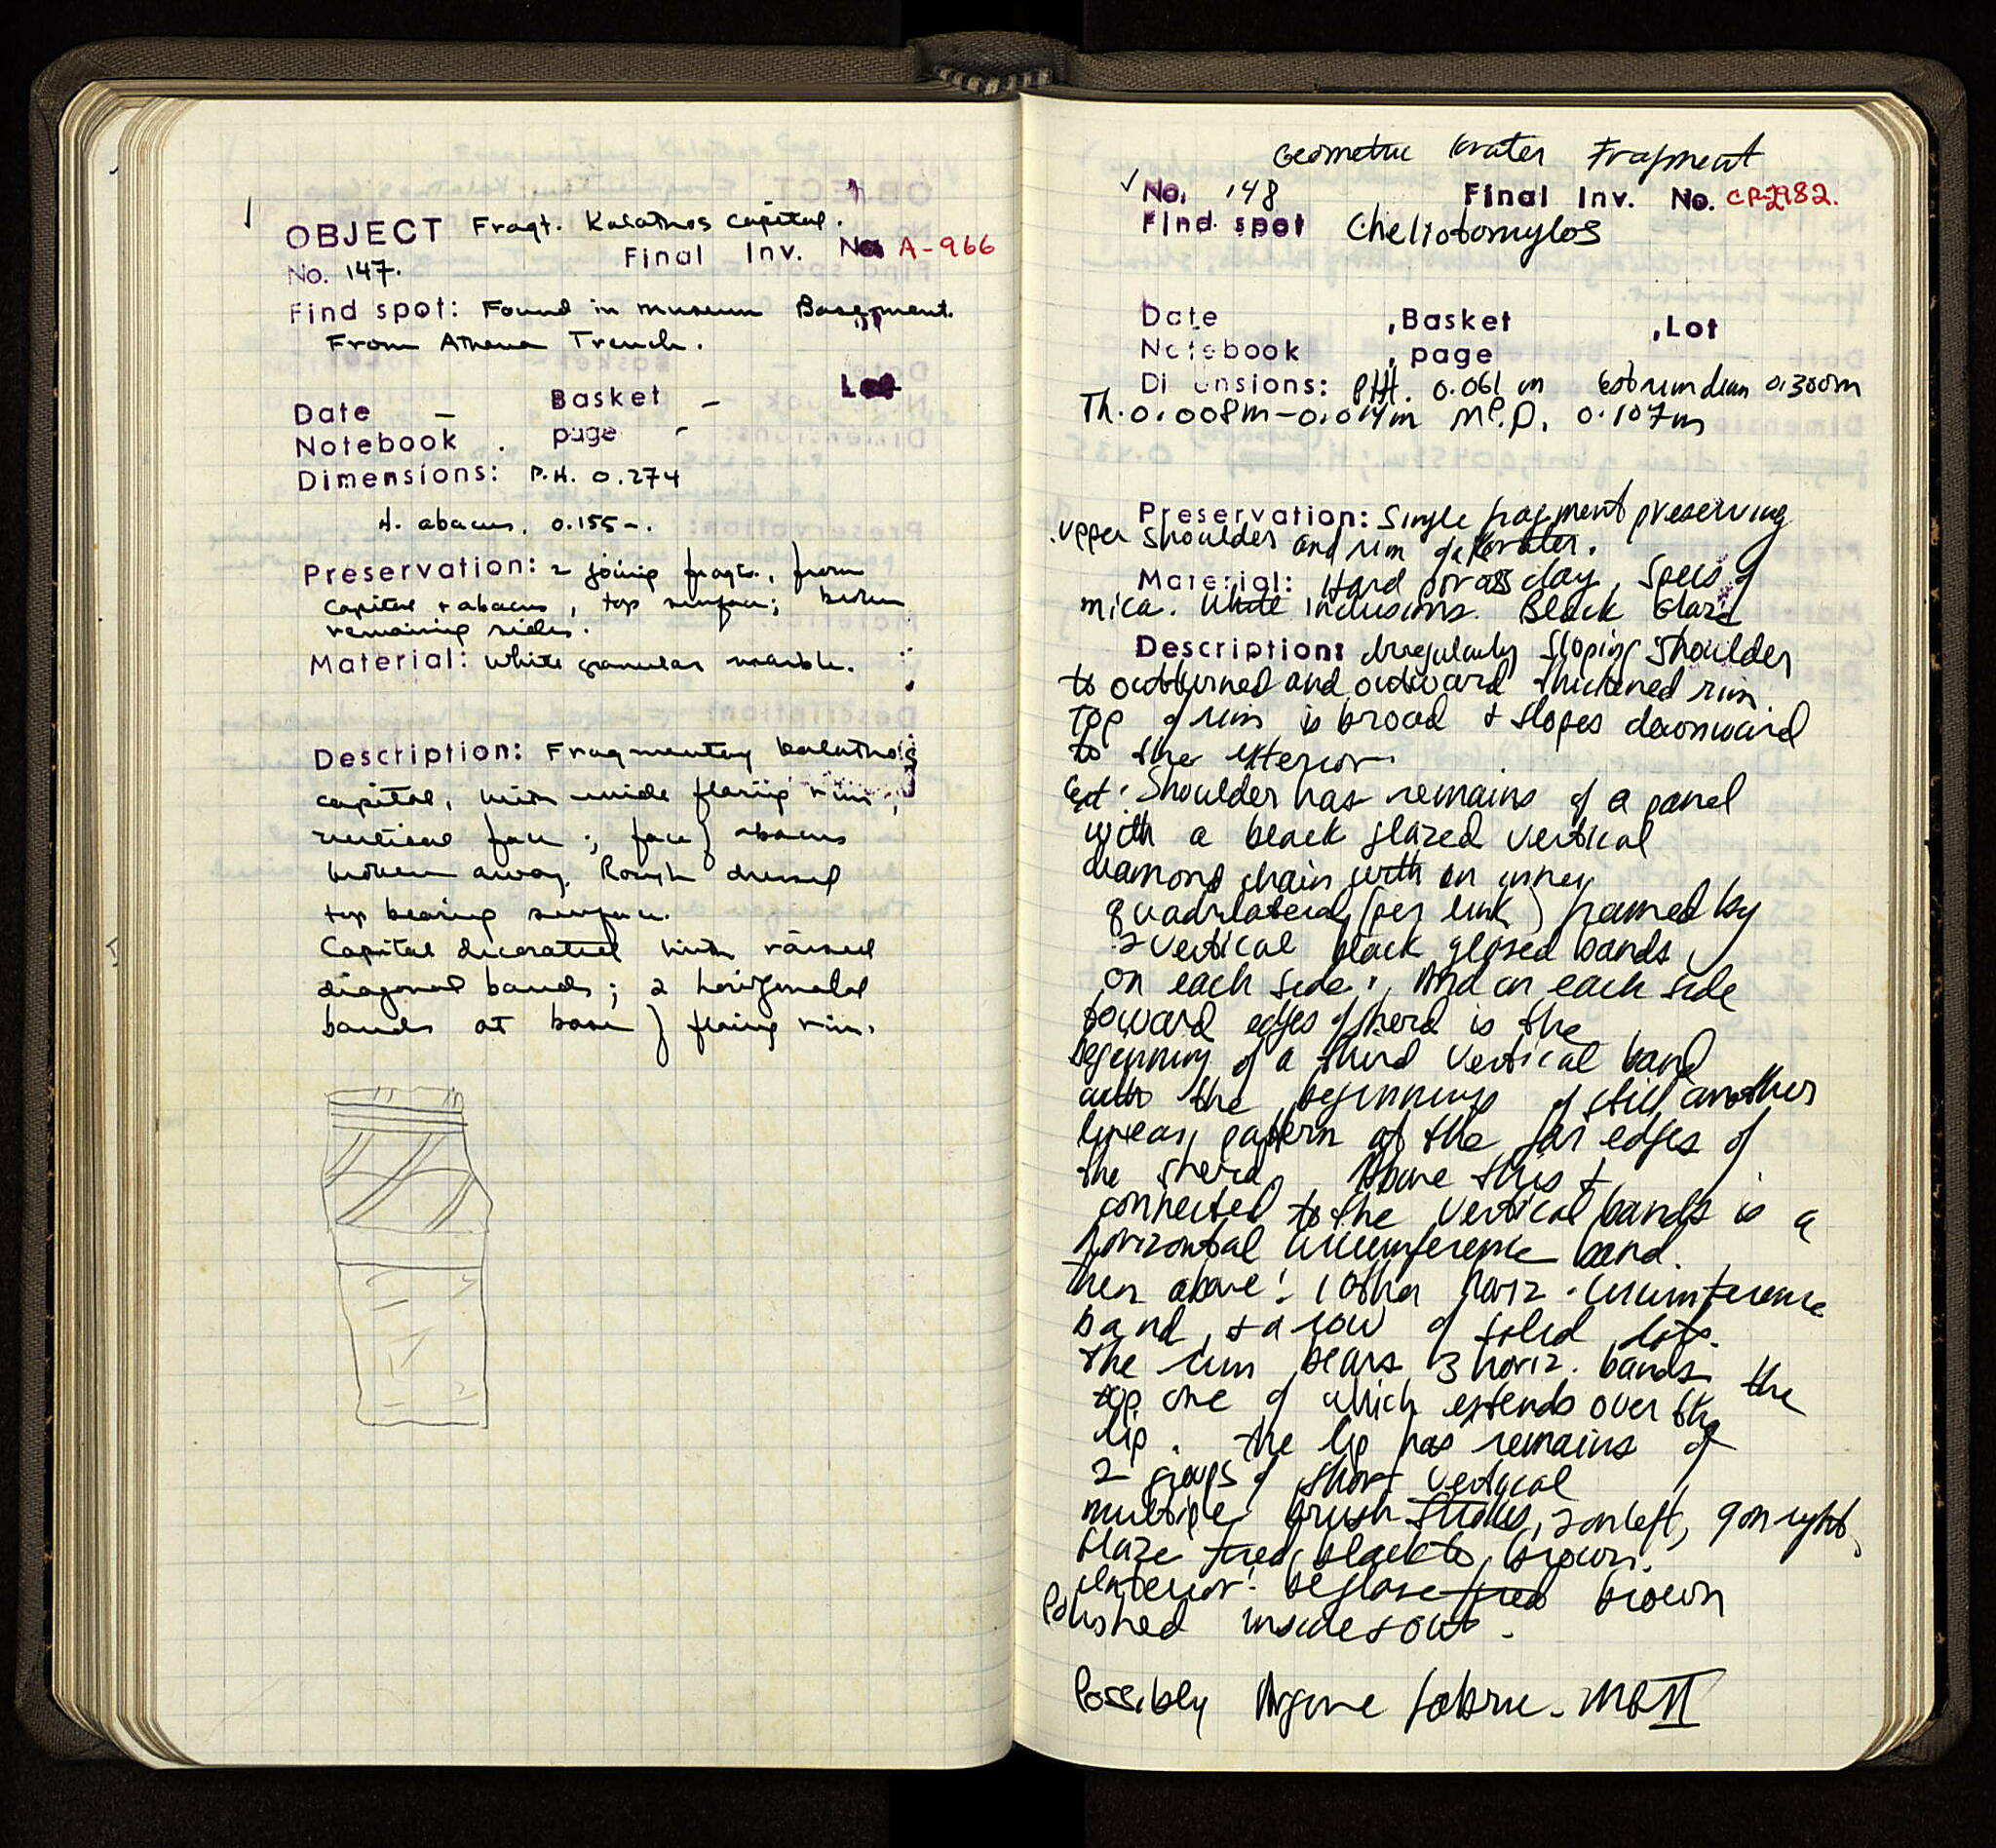 ✓ OBJECT Fragt. Kalathos capital.
Final Inv. No A-966
No. 147.
Find spot: Found in museum Basement.
From Athena Trench.
Lot
Date – Basket –
Notebook . page -
Dimensions: P.H. 0.274
H. abacus. 0.155-.
Preservation: 2 joining fragts., from
capital + abacus, top surface; broken
remaining sides.
Material: white granular marble.
Description: Fragmentary kalathos
capital, with wide flaring rim,
vertical face; face of abacus
broken away. Rough dressed
top bearing surface.
Capital decorated with raised
diagonal bands; 2 horizontal
bands at base of flaring rim.
Geometric krater Fragment
✓ No. 148 Final Inv. No. CP-2982.
Find spot Cheliotomylos
Date , Basket , Lot
Notebook , page
Di ensions: PH. 0.061 m est rim diam 0.300m
Th. 0.008m-0.014m M.P.D. 0.107m
Preservation: Single fragment preserving
upper shoulder and rim of a krater.
Material: Hard clay, specs of
mica. White inclusions. Black Glaze
Description: Irregularly sloping shoulder
to outturned and outward thickened rim.
Top of rim is broad + slopes downward
to the exterior.
Ext: Shoulder has remains of a panel
with a black glazed vertical
diamond chain with an inner
quadrilateral (per link) framed by
2 vertical black glazed bands
on each side. And on each side
toward edges of sherd is the
beginning of a third vertical band
with the beginnings of still another
linear pattern at the far edges of
the sherd. Above this +
connected to the vertical bands is a
horizontal circumference band.
Then above: 1 other horiz. circumference
band, + a row of solid dots.
The rim bears 3 horiz. bands the
top one of which extends over the
lip. The lip has remains of
2 groups of short vertical
multiple brush strokes, 2 on left, 9 on right,
Glaze fired black to brown.
Interior: Bl glaze fired brown
Polished inside + out.
Possibly Argive fabric - MG II